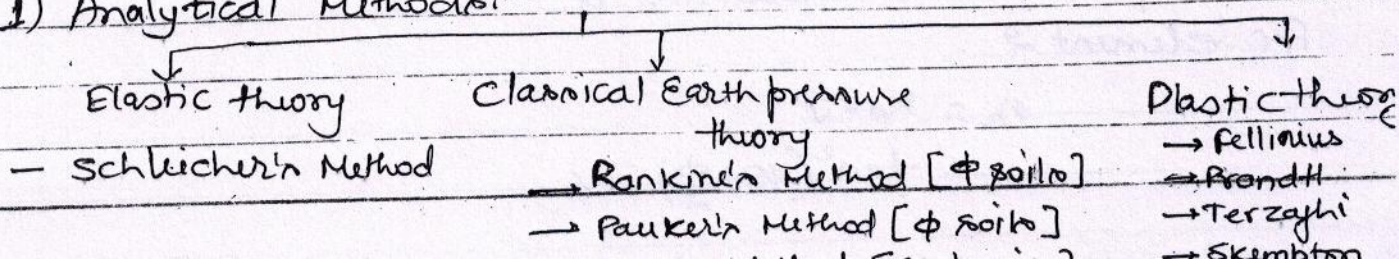 1) Analytical Methods:
Elastic theory
- Schleicher's Method
Classical Earth pressure
theory
→ Rankine's Method [φ soils]
→ Pauker's Method [φ soils]
Plastic theory
→ Fellinius
→ Prandtl
→ Terzaghi
→ Skempton